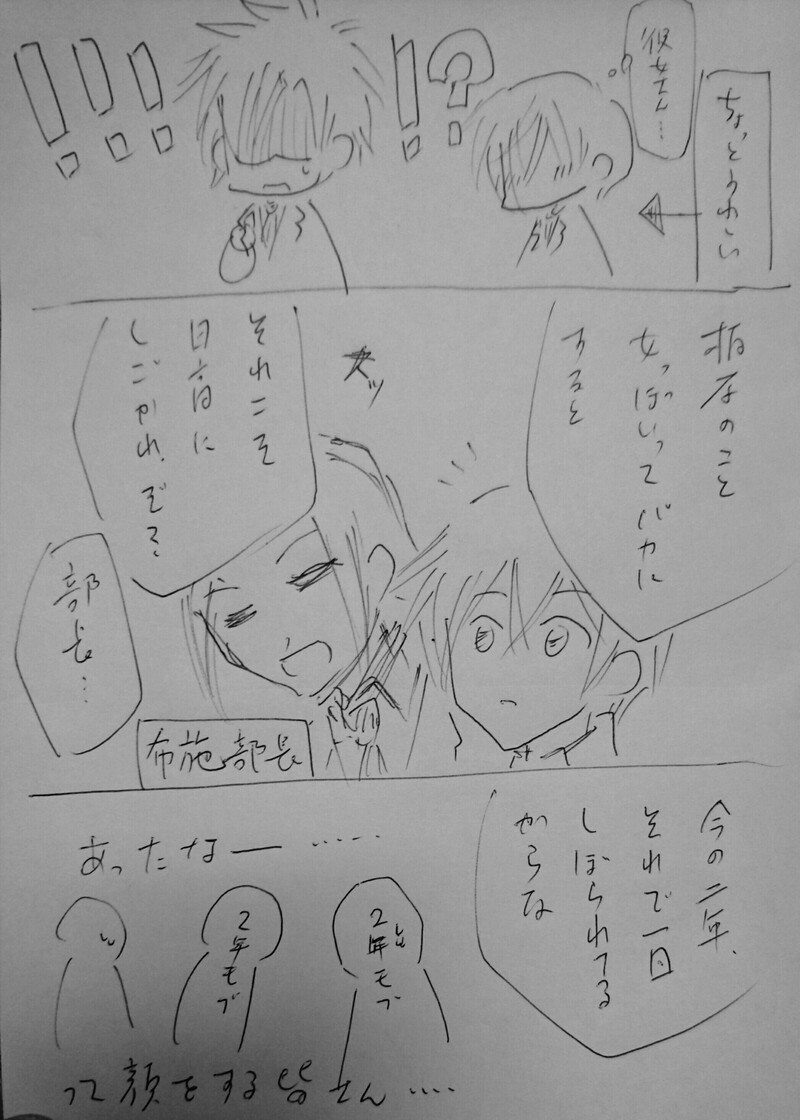 彼女さん…
ちょっとうれしい
!?
!!!
柏原のこと
女っぽいってバカに
すると
ヌッ
それこそ
しごかれ、ぞ?
部長…
布施部長
今の二年、
それで一回
しぼられてる
からな
あったなー……
2年モブ
2年モブ
って顔をする皆さん….